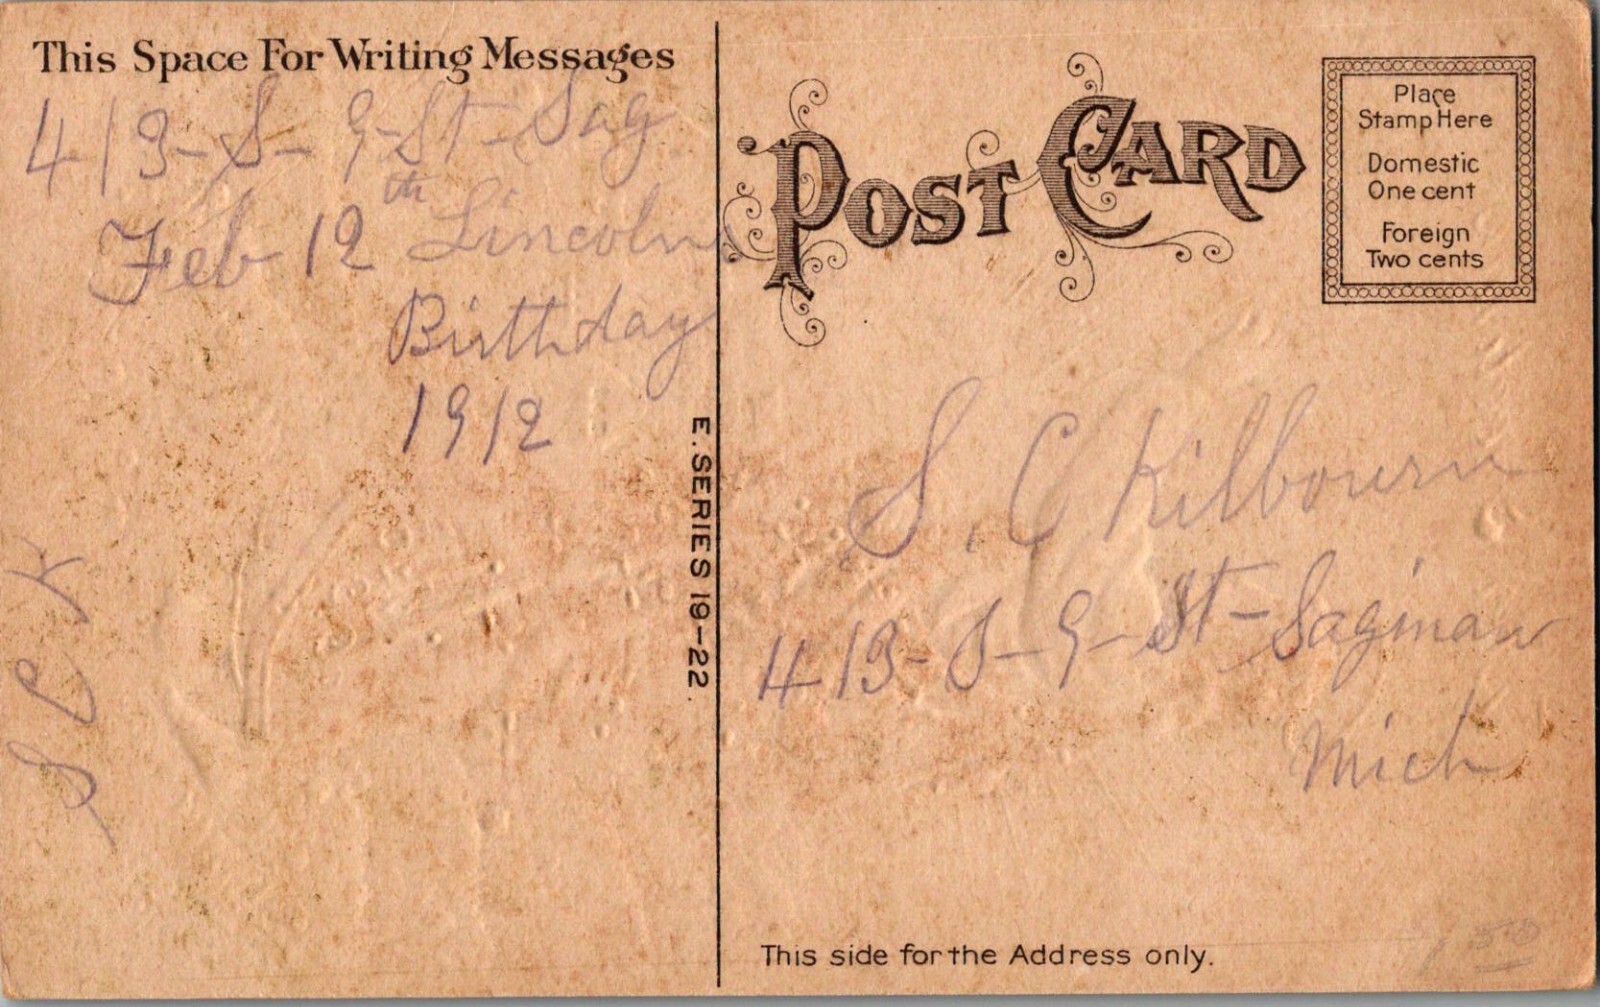 This Space For Writing Messages
413- S- 9- St- Sag
Feb 12th Lincolns
Birthday
1912
S C K
E. SERIES 19-22.
POST CARD
Place
Stamp Here
Domestic
One cent
Foreign
Two cents
S. C Kilbourn
413- S- 9- St- Saginaw
Mich
This side for the Address only.
50